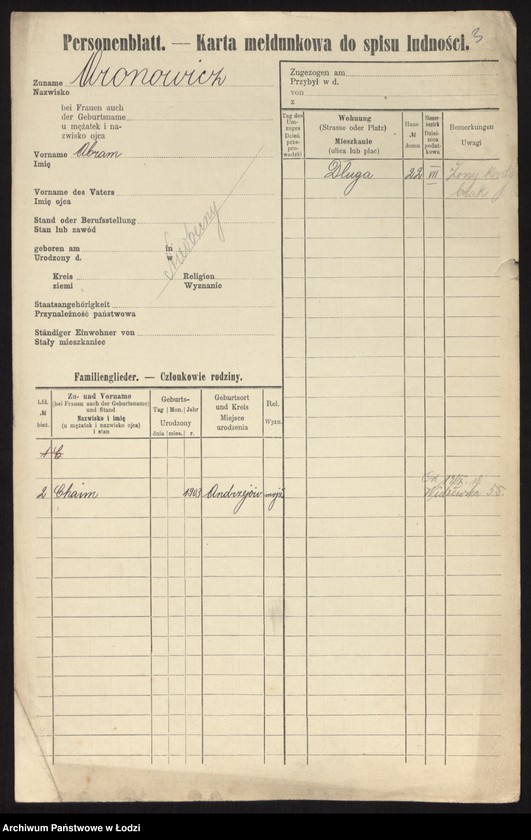 3
Personenblatt. — Karta meldunkowa do spisu ludności.
Zuname
Nazwisko
bei Frauen auch
der Geburtsname
u mężatek i na-
zwisko ojca
Vorname Abram
Imię
Vorname des Vaters
Imię ojca
Stand oder Berufsstellung
Stan lub zawód
geboren am in
Urodzony d. w
Kreis Religion
ziemi Wyznanie
Staatsangehörigkeit
Przynależność państwowa
Ständiger Einwohner von
Stały mieszkaniec
Zugezogen am
Przybył w d.
von
z
Tag des
Um-
zuges
Dzień
prze-
prowa-
dzki
Wohnung
(Strasse oder Platz)
Mieszkanie
(ulica lub plac)
Haus-
№
domu
Bemerkungen
Uwagi
Długa 22 VII
Familienglieder. — Członkowie rodziny.
Lfd.
№
bież.
Zu- und Vorname
(bei Frauen auch der Geburtsname)
und Stand
Nazwisko i imię
(u mężatek i nazwisko ojca)
i stan
Geburts-
Tag Mon. Jahr
Urodzony
dnia mies. r.
Geburtsort
und Kreis
Miejsce
urodzenia
Rel.
Wyzn.
1 C
2 Chaim 1903 Andrzejów mojż
Widzewska 55.
Archiwum Państwowe w Łodzi